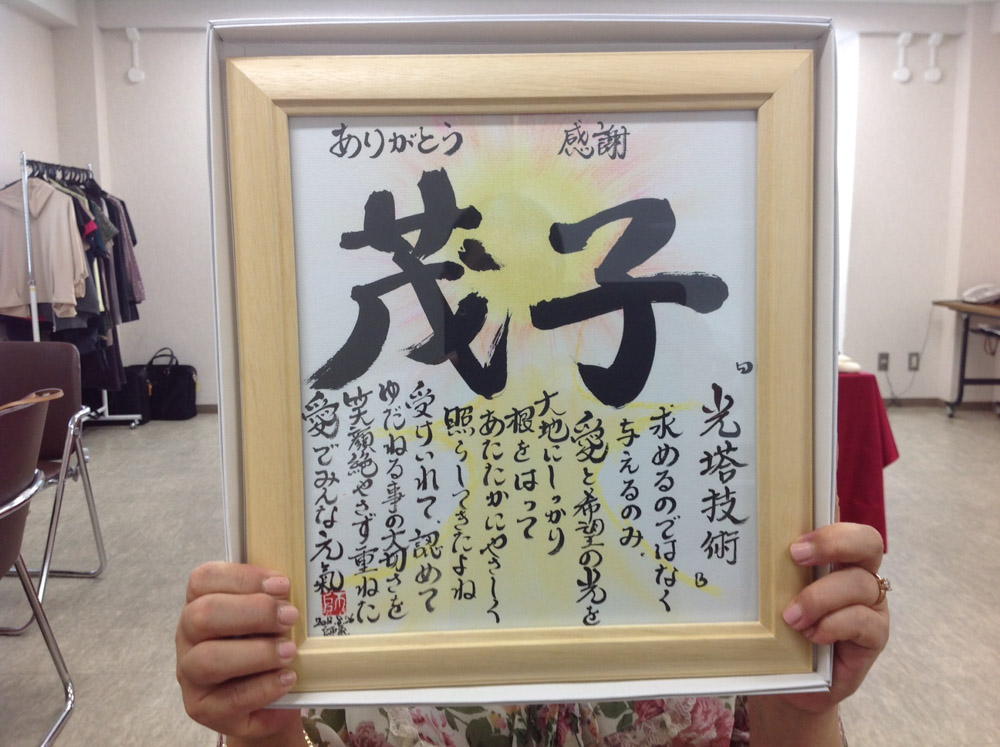 ありがとう 感謝
茂子
「光塔技術」
求めるのではなく
与えるのみ、
愛と希望の光を
大地にしっかり
根をはって
あたたかにやさしく
照らしてきたよね
受けいれて、認めて
ゆだねる事の大切さを
笑顔絶やさず重ねた
愛でみんな元氣